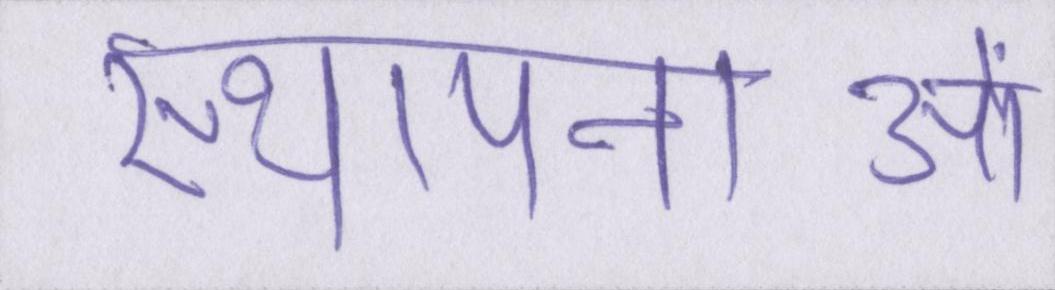 स्थापनाओं